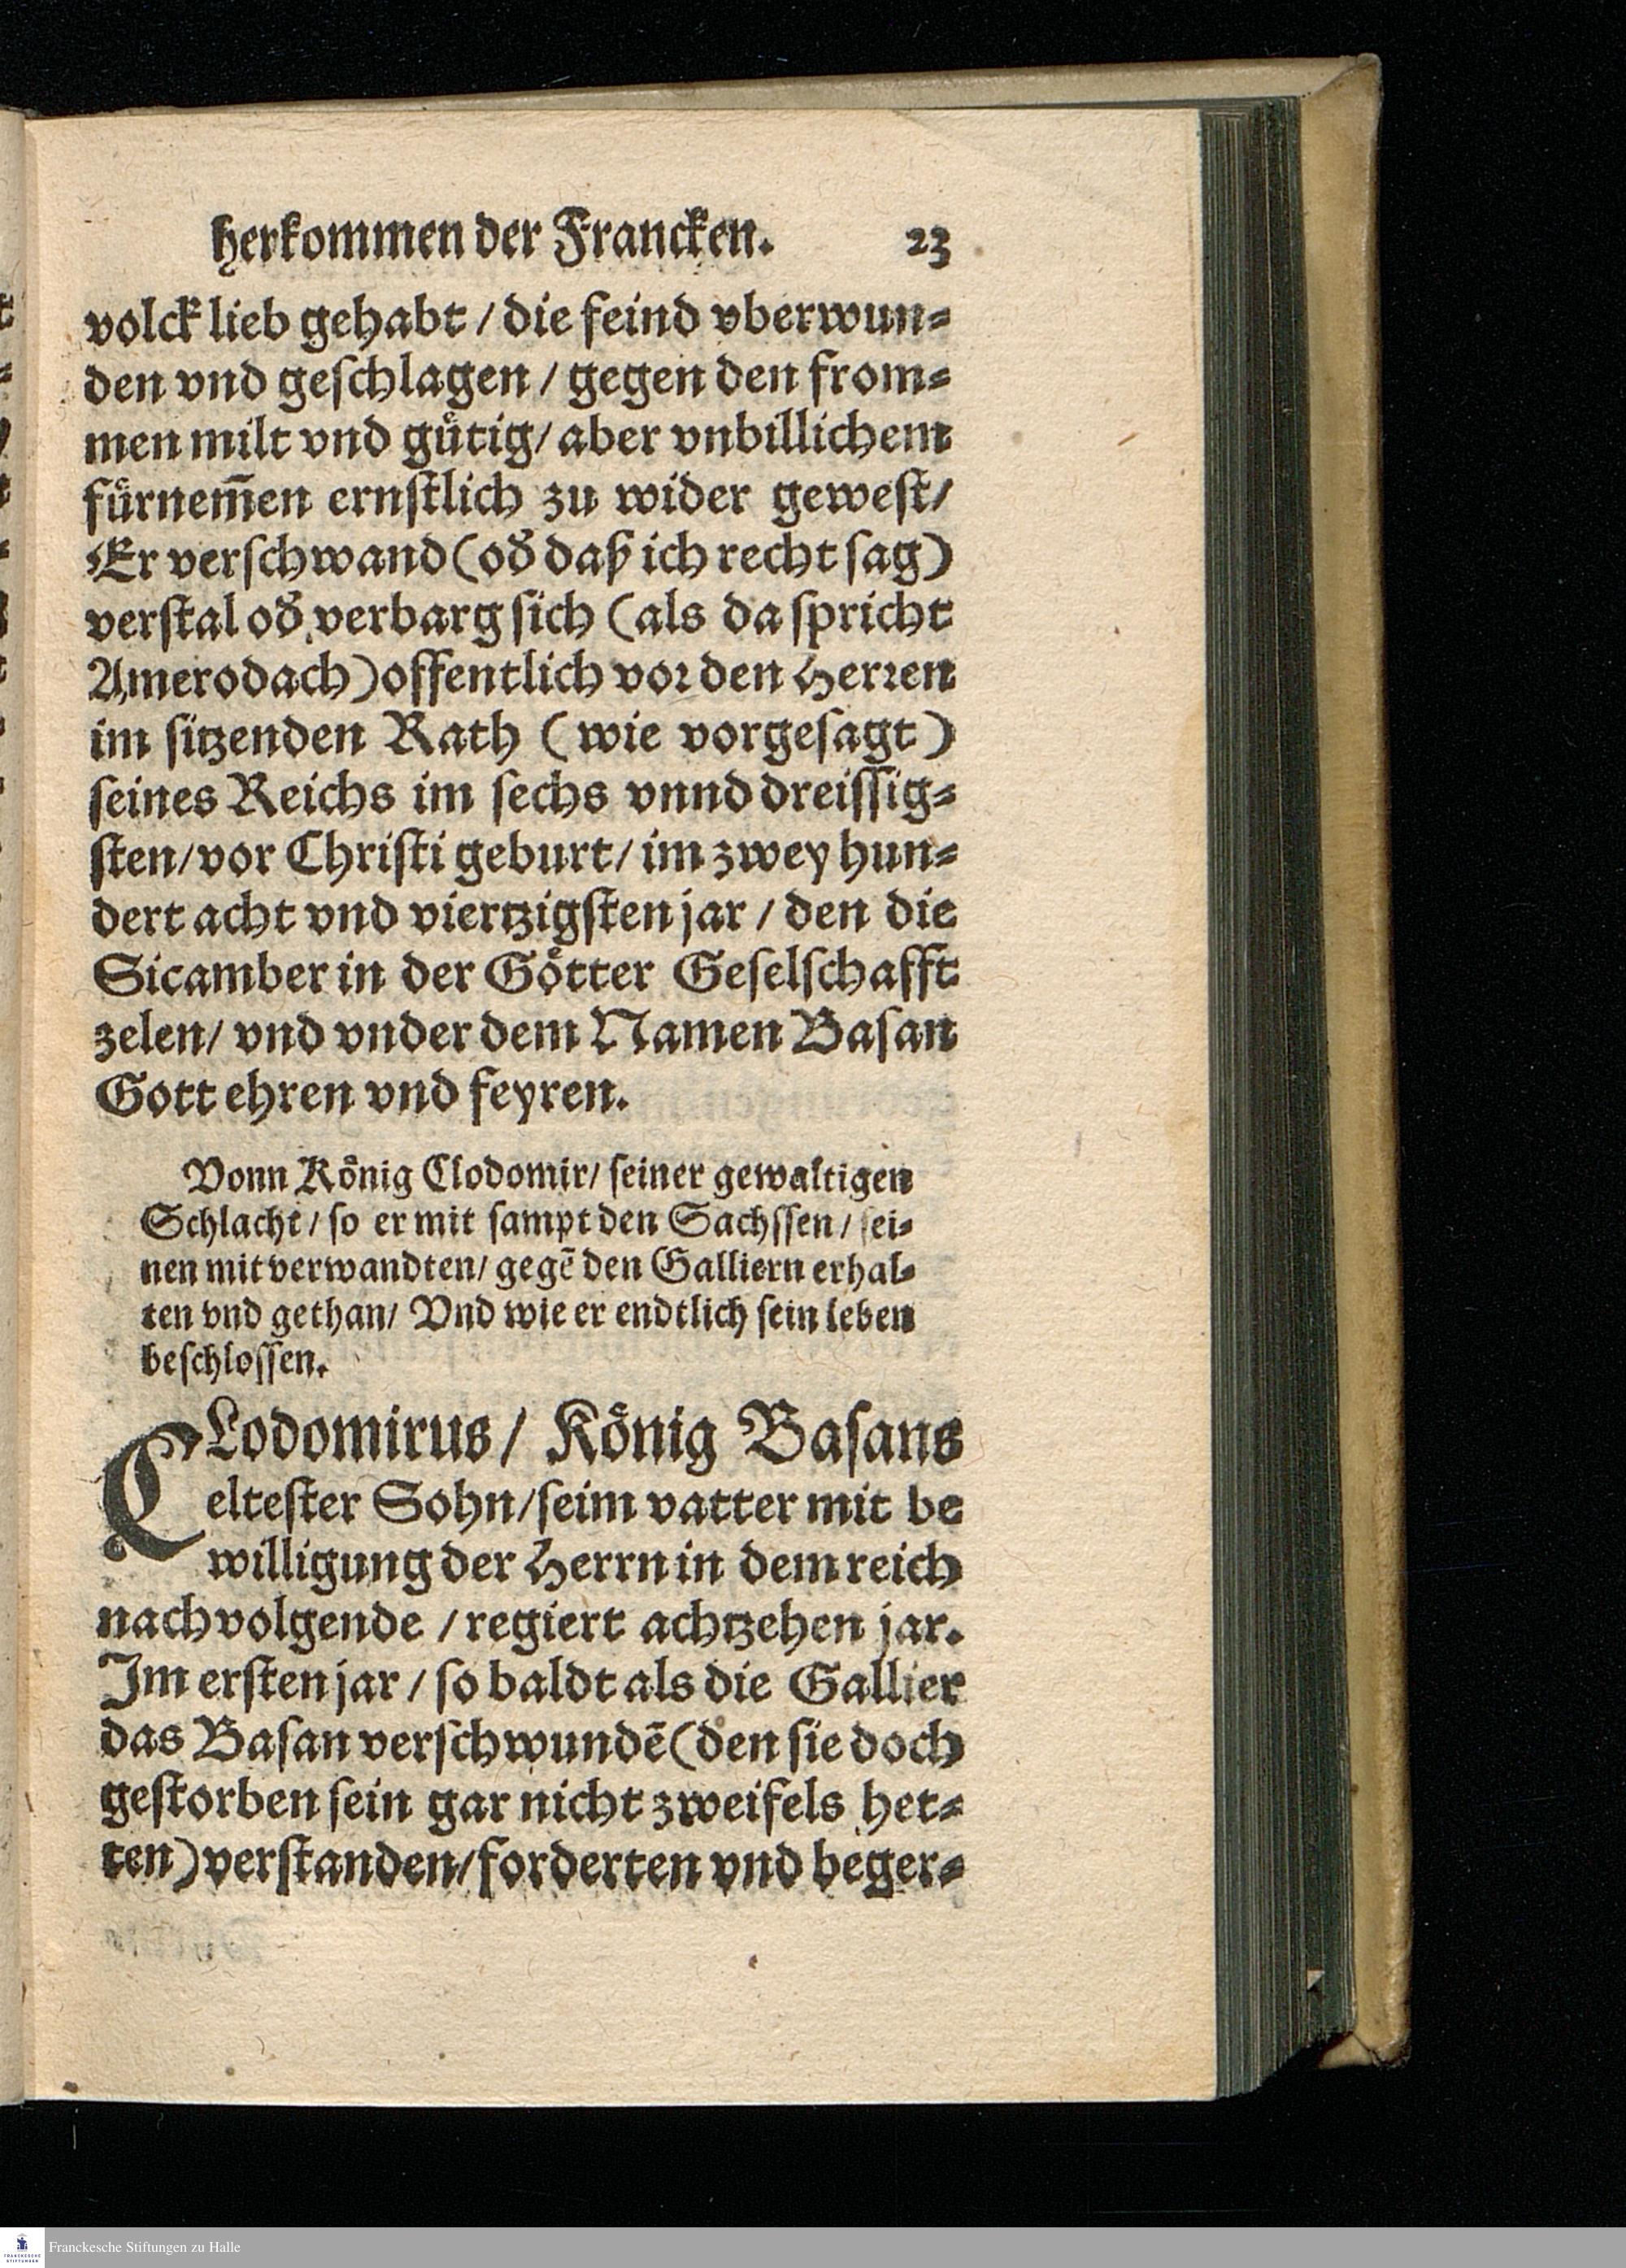 herkommen der Francken. 23
volck lieb gehabt / die feind vberwun⸗
den vnd geſchlagen / gegen den from⸗
men milt vnd guͤtig / aber vnbillichem
fuͤrnem̃en ernſtlich zu wider geweſt /
Er verſchwand (oď daß ich recht ſag)
verſtal oď verbarg ſich (als da ſpricht
Amerodach) offentlich voꝛ den Herꝛen
im ſitzenden Rath (wie vorgeſagt)
ſeines Reichs im ſechs vnnd dreiſſig⸗
ſten / vor Chriſti geburt / im zwey hun⸗
dert acht vnd viertzigſten jar / den die
Sicamber in der Goͤtter Geſelſchafft
zelen / vnd vnder dem Namen Baſan
Gott ehren vnd feyren.
Vonn Koͤnig Clodomir / ſeiner gewaltigen
Schlacht / ſo er mit ſampt den Sachſſen / ſei⸗
nen mitverwandten / gegẽ den Galliern erhal⸗
ten vnd gethan / Vnd wie er endtlich ſein leben
beſchloſſen.
CLodomirus / Koͤnig Baſans
elteſter Sohn / ſeim vatter mit be
willigung der Herrn in dem reich
nachvolgende / regiert achtzehen jar.
Im erſten jar / ſo baldt als die Gallier
das Baſan verſchwundẽ (den ſie doch
geſtorben ſein gar nicht zweifels het⸗
ten) verſtanden / forderten vnd beger⸗
Franckesche Stiftungen zu Halle
FRANCKESCHE
STIFTUNGEN